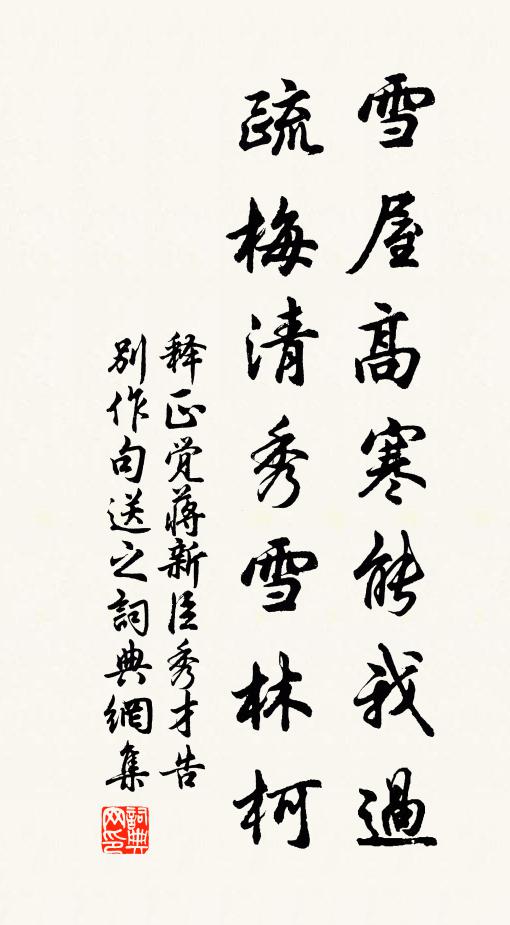 雪屋高寒能我過
疏梅清秀雪林柯
释正觉蒋新臣秀才告
別作句送之詞典網集
詞典网印